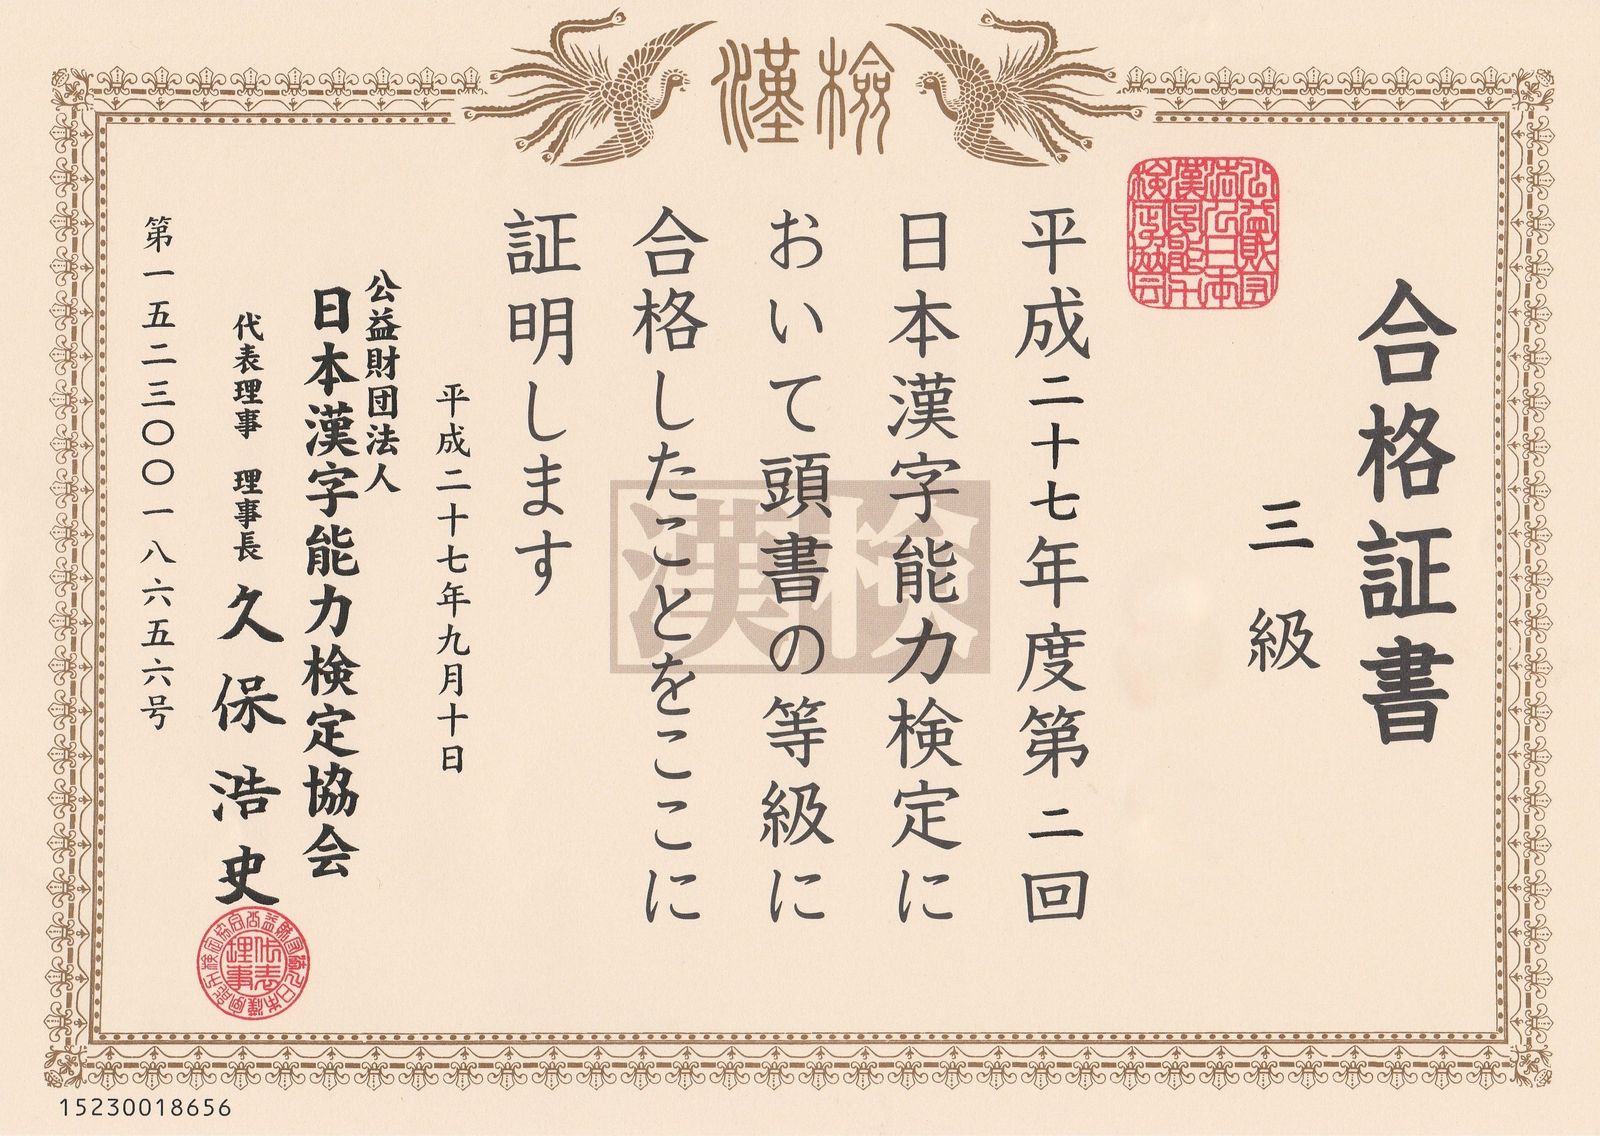 漢検
合格証書
三級
平成二十七年度第二回
日本漢字能力検定に
おいて頭書の等級に
合格したことをここに
証明します
平成二十七年九月十日
公益財団法人
日本漢字能力検定協会
代表理事 理事長 久保浩史
第一五二三〇〇一八六五六号
漢検
15230018656